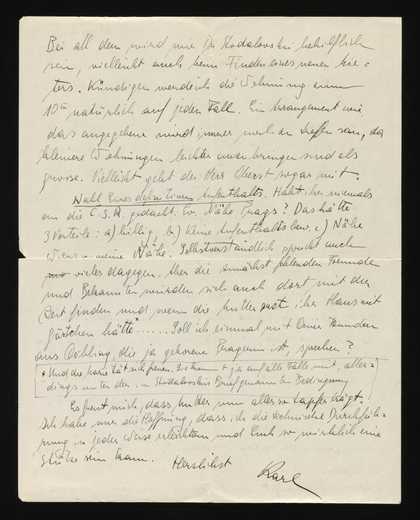 Bei all dem wird mir Dr. Hodalovski behilflich
sein, vielleicht auch beim Finden eines neuen Mie-
ters. Kündigen werde ich die Wohnung zum
10ten natürlich auf jeden Fall. Ein Arrangement wie
das angegebene wird immer noch zu treffen sein, da
kleinere Wohnungen leichter anzubringen sind als
grosse. Vielleicht geht der Herr Oberst sogar mit.
Wahl Eures definitiven Aufenthalts. Habt Ihr niemals
an die C.S.R. gedacht. Ev. Nähe Prags? Das hätte
3 Vorteile: a) billig, b) keine Aufenthaltsbew. c) Nähe
Wiens meine Nähe. Selbstverständlich spricht auch
vieles dagegen. Aber die zunächst fehlenden Freunde
und Bekannten würden sich auch dort mit der
Zeit finden und, wenn die Mutter erst ihr Haus mit
Gärtchen hätte" ...... Soll ich einmal mit Deiner
aus Döbling, die ja geborene Pragerin ist, sprechen?
Und das Karie lässt sich freuen. Sie kommt ja auf alle Fälle mit, aller-
dings unter der in Hodalovskis Brief genannten Bedingung
Es freut mich, dass Mutter nun alles so tapfer trägt.
Ich habe nur die Hoffnung, dass ich die technische Durchfüh-
rung in jeder Weise erleichtern und Euch so wirklich eine
Stütze sein kann. Herzlichst
Karl